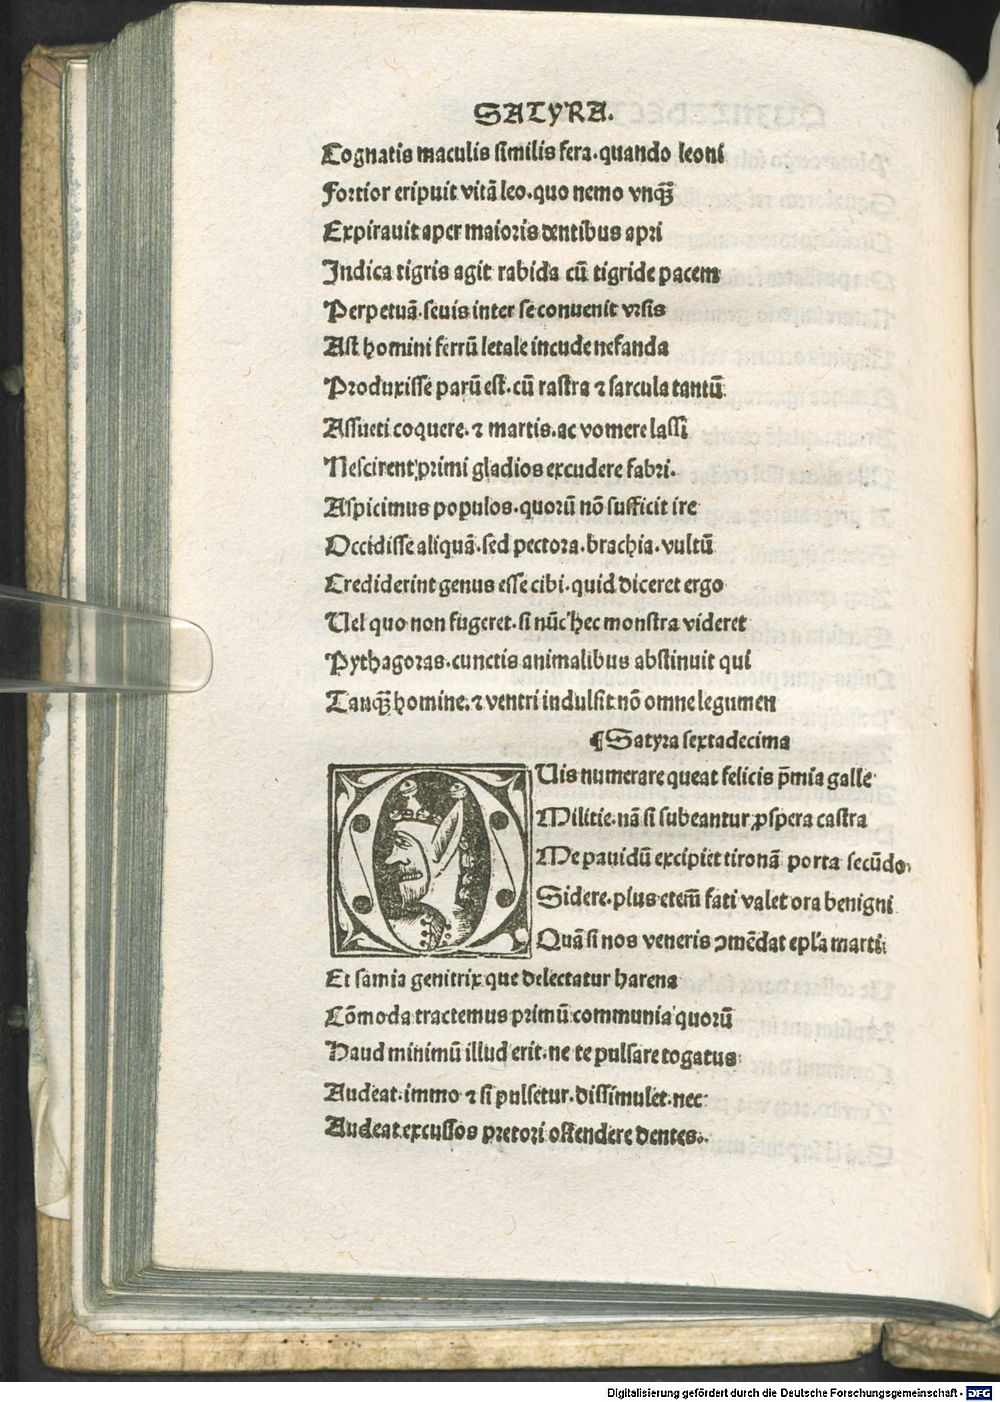 SATYRA.
Cognatis maculis similis fera. quando leoni
Fortior eripuit vitā leo. quo nemo vnqȝ̄
Expirauit aper maioris dentibus apri
Indica tigris agit rabida cū tigride pacem
Perpetuā. seuis inter se conuenit vrsis
Ast homini ferrū letale incude nefanda
Produxisse parū est. cū rastra ⁊ sarcula tantū
Assueti coquere. ⁊ martis. ac vomere lassi
Nescirent primi gladios excudere fabri.
Aspicimus populos. quorū nō sufficit ire
Occidisse aliquā. sed pectora. brachia. vultū
Crediderint genus esse cibi. quid diceret ergo
Uel quo non fugeret. si nūc hec monstra videret
Pythagoras. cunctis animalibus abstinuit qui
Tanqȝ̄ homine. ⁊ ventri indulsit nō omne legumen
¶Satyra sextadecima
QUis numerare queat felicis p̄mia galle
Militie. nā si subeantur ꝓspera castra
Me pauidū excipiet tironā porta secūdo
Sidere. plus etem̄ fati valet ora benigni
Quā si nos veneris ↄmēdat epl̓a marti
Et samia genitrix que delectatur harena
Cōmoda tractemus primū communia quorū
Haud minimū illud erit. ne te pulsare togatus
Audeat. immo ⁊ si pulsetur. dissimulet. nec
Audeat excussos pretori ostendere dentes.
Digitalisierung gefördert durch die Deutsche Forschungsgemeinschaft - DFG